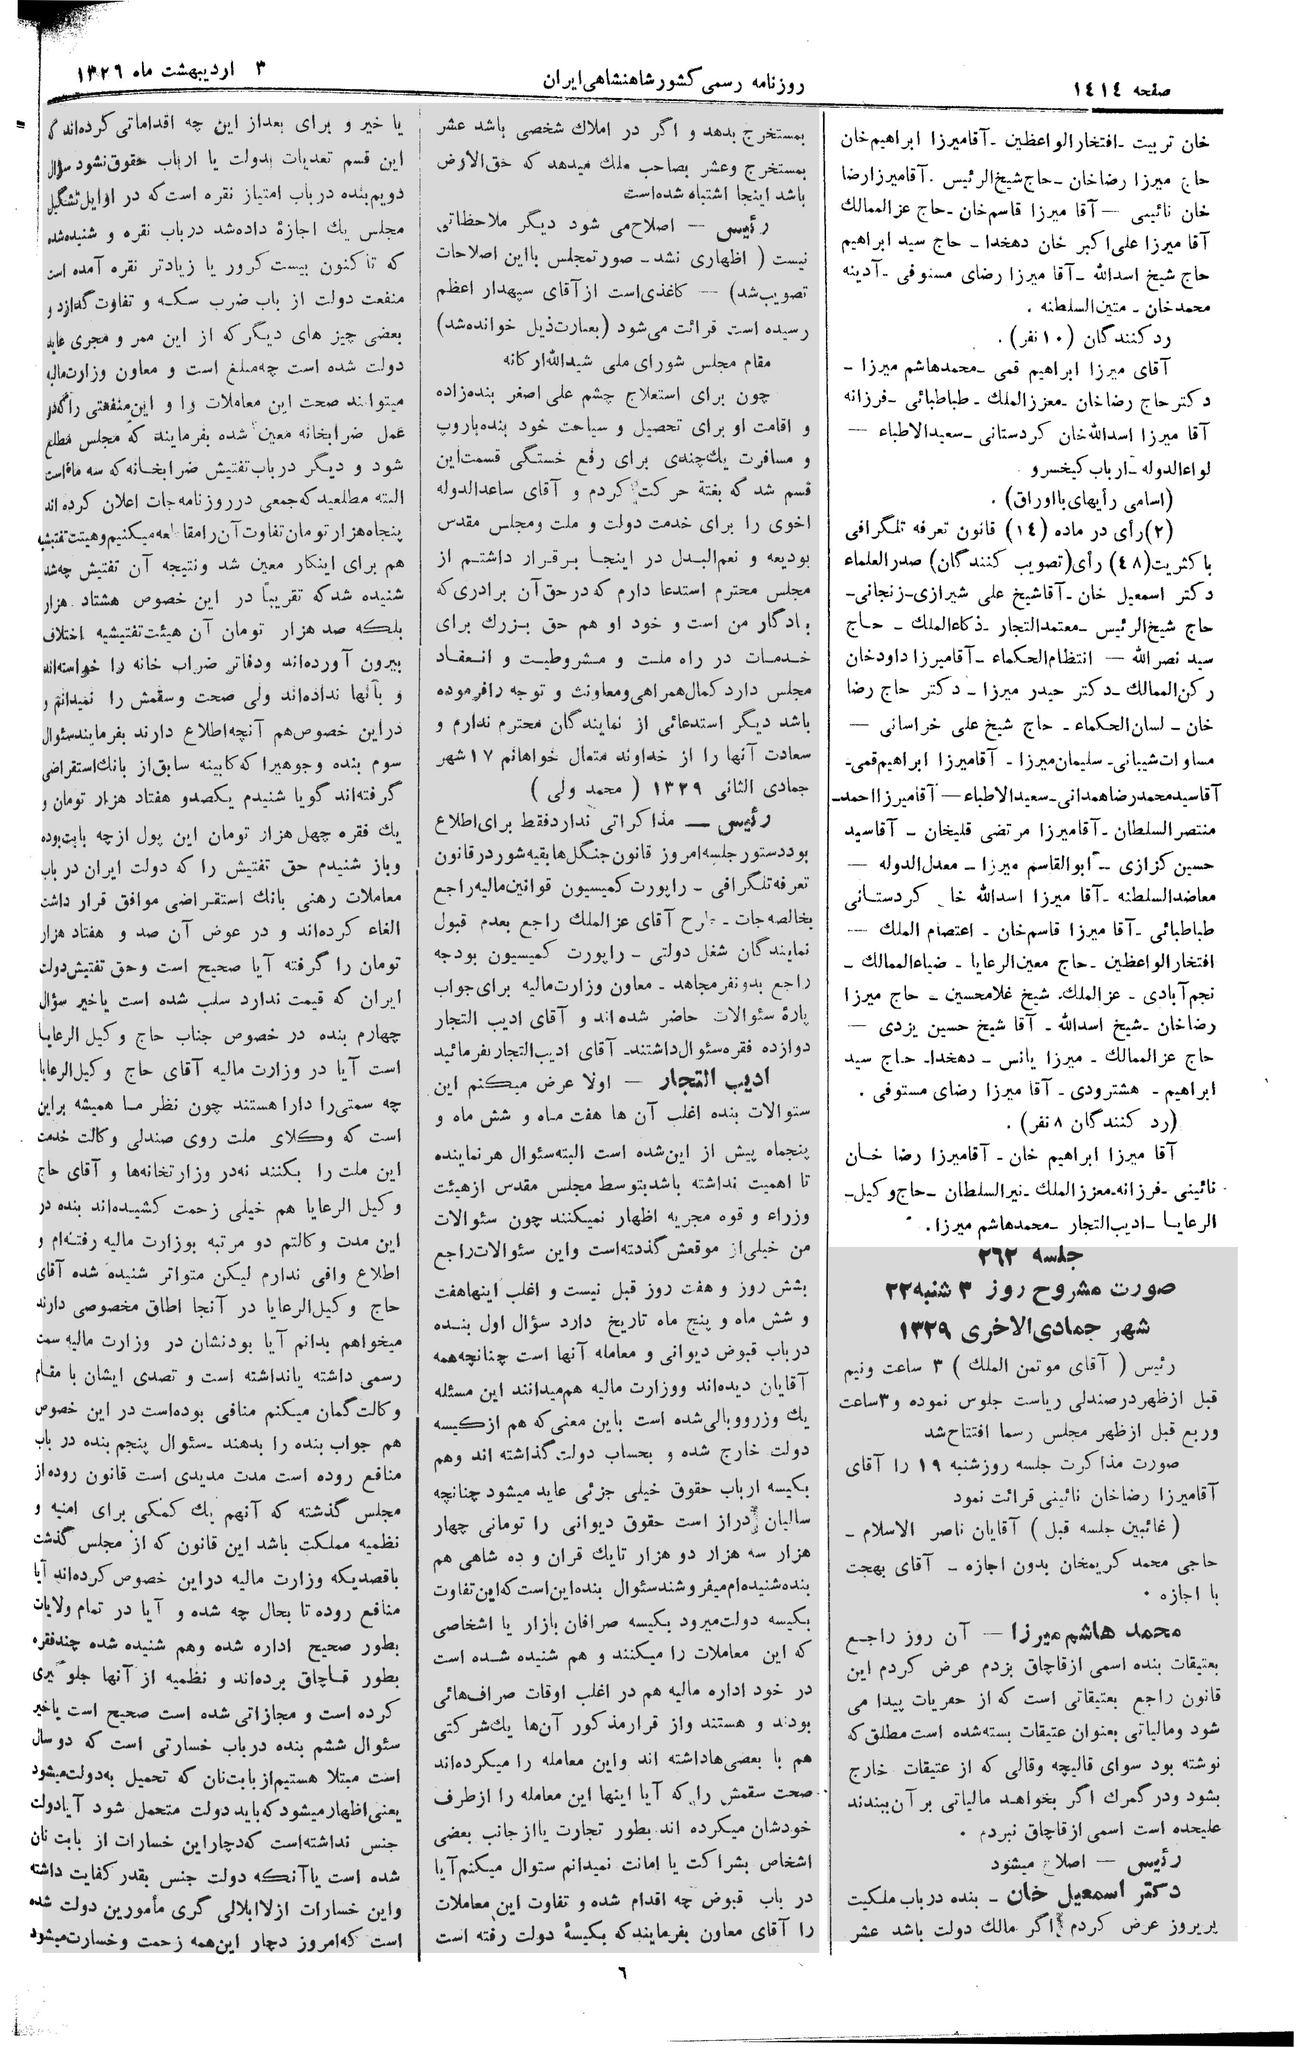 صفحه ١٤١٤
روزنامه رسمی کشور شاهنشاهی ایران
٣ اردیبهشت ماه ١٣٢٦
خان تربیت ـ افتخارالواعظین ـ آقا میرزا ابراهیم خان
حاج میرزا رضاخان ـ حاج شیخ الرئیس . آقا میرزا رضا
خان نائینی — آقا میرزا قاسم خان ـ حاج عزالممالك
آقا میرزا علی اکبر خان دهخدا ـ حاج سید ابراهیم
حاج شیخ اسدالله ـ آقا میرزا رضای مستوفی ـ آدینه
محمدخان ـ متین السلطنه .
رد کنندگان (١٠ نفر) .
آقای میرزا ابراهیم قمی ـ محمدهاشم میرزا ـ
دکتر حاج رضاخان ـ معززالملك ـ طباطبائی ـ فرزانه
آقا میرزا اسدالله خان کردستانی ـ سعیدالاطباء —
لواءالدوله ـ ارباب کیخسرو
(اسامی رأیهای بااوراق) .
(٢) رأی در ماده (١٤) قانون تعرفه تلگرافی
با کثریت (٤٨) رأی (تصویب کنندگان) صدرالعلماء
دکتر اسمعیل خان ـ آقا شیخ علی شیرازی ـ زنجانی ـ
حاج شیخ الرئیس ـ معتمدالتجار ـ ذکاءالملك ـ حاج
سید نصرالله — انتظام الحکماء ـ آقا میرزا داودخان
رکن الممالك ـ دکتر حیدر میرزا ـ دکتر حاج رضا
خان ـ لسان الحکماء ـ حاج شیخ علی خراسانی —
مساوات شیبانی ـ سلیمان میرزا ـ آقامیرزا ابراهیم قمی ـ
آقا سید محمدرضا همدانی ـ سعیدالاطباء — آقا میرزا احمد ـ
منتصرالسلطان ـ آقا میرزا مرتضی قلیخان ـ آقاسید
حسین کزازی ـ ابوالقاسم میرزا ـ معدل الدوله —
معاضدالسلطنه ـ آقا میرزا اسدالله خان کردستانی
طباطبائی ـ آقا میرزا قاسم خان ـ اعتصام الملك —
افتخارالواعظین ـ حاج معین الرعایا ـ ضیاءالممالك ـ
نجم آبادی ـ عزالملك ـ شیخ غلامحسین ـ حاج میرزا
رضاخان ـ شیخ اسدالله ـ آقا شیخ حسین یزدی —
حاج عزالممالك ـ میرزا یانس ـ دهخدا ـ حاج سید
ابراهیم ـ هشترودی ـ آقا میرزا رضای مستوفی .
(رد کنندگان ٨ نفر) .
آقا میرزا ابراهیم خان ـ آقامیرزا رضا خان
نائینی ـ فرزانه ـ معززالملك ـ نیرالسلطان ـ حاج وکیل ـ
الرعایا ـ ادیب التجار ـ محمدهاشم میرزا .
جلسه ٢٦٢
صورت مشروح روز ٣ شنبه ٢٢
شهر جمادی الاخری ١٣٢٩
رئیس (آقای موتمن الملك) ٣ ساعت ونیم
قبل ازظهر درصندلی ریاست جلوس نموده و ٣ ساعت
وربع قبل ازظهر مجلس رسما افتتاح شد
صورت مذاکرت جلسه روزشنبه ١٩ را آقای
آقامیرزا رضاخان نائینی قرائت نمود
(غائبین جلسه قبل) آقایان ناصر الاسلام ـ
حاجی محمد کریمخان بدون اجازه ـ آقای بهجت
با اجازه .
محمد هاشم میرزا — آن روز راجع
بعتیقات بنده اسمی ازقاچاق بزدم عرض کردم این
قانون راجع بعتیقاتی است که از حفریات پیدا می
شود ومالیاتی بعنوان عتیقات بسته شده است مطلق که
نوشته بود سوای قالیچه وقالی که از عتیقات خارج
بشود ودر گمرك اگر بخواهد مالیاتی بر آن ببندند
علیحده است اسمی ازقاچاق نبردم .
رئیس — اصلاح میشود
دکتر اسمعیل خان ـ بنده درباب ملکیت
پریروز عرض کردم اگر مالك دولت باشد عشر
بمستخرج بدهد و اگر در املاك شخصی باشد عشر
بمستخرج وعشر بصاحب ملك میدهد که حق الارض
باشد اینجا اشتباه شده است
رئیس — اصلاح می شود دیگر ملاحظاتی
نیست ( اظهاری نشد ـ صورتمجلس بااین اصلاحات
تصویب شد) — کاغذی است ازآقای سپهدار اعظم
رسیده است قرائت می شود (بعبارت ذیل خوانده شد)
مقام مجلس شورای ملی شیدالله ارکانه
چون برای استعلاج چشم علی اصغر بنده زاده
و اقامت او برای تحصیل و سیاحت خود بنده باروپ
و مسافرت یك چندی برای رفع خستگی قسمت این
قسم شد که بغتة حرکت کردم و آقای ساعدالدوله
اخوی را برای خدمت دولت و ملت ومجلس مقدس
بودیعه و نعم البدل در اینجا برقرار داشتم از
مجلس محترم استدعا دارم که درحق آن برادری که
یادگار من است و خود او هم حق بزرك برای
خدمات در راه ملت و مشروطیت و انعقاد
مجلس دارد کمال همراهی ومعاونت و توجه رافرموده
باشد دیگر استدعائی از نمایندگان محترم ندارم و
سعادت آنها را از خداوند متعال خواهانم ١٧ شهر
جمادی الثانی ١٣٢٩ ( محمد ولی )
رئیس — مذاکراتی ندارد فقط برای اطلاع
بود دستور جلسه امروز قانون جنگل ها بقیه شور درقانون
تعرفه تلگرافی ـ راپورت کمیسیون قوانین مالیه راجع
بخالصه جات ـ طرح آقای عزالملك راجع بعدم قبول
نمایندگان شغل دولتی ـ راپورت کمیسیون بودجه
راجع بدو نفر مجاهد ـ معاون وزارت مالیه برای جواب
پارۀ سئوالات حاضر شده اند و آقای ادیب التجار
دوازده فقره سئوال داشتند ـ آقای ادیب التجار بفرمائید
ادیب التجار — اولا عرض میکنم این
سئوالات بنده اغلب آن ها هفت ماه و شش ماه و
پنجماه پیش از این شده است البته سئوال هر نماینده
تا اهمیت نداشته باشد بتوسط مجلس مقدس ازهیئت
وزراء و قوه مجریه اظهار نمیکنند چون سئوالات
من خیلی از موقعش گذدته است واین سئوالات راجع
بشش روز و هفت روز قبل نیست و اغلب اینها هفت
و شش ماه و پنج ماه تاریخ دارد سؤال اول بنده
درباب قبوض دیوانی و معامله آنها است چنانچه همه
آقایان دیده اند ووزارت مالیه هم میدانند این مسئله
یك وزرووبالی شده است باین معنی که هم ازکیسه
دولت خارج شده و بحساب دولت گذاشته اند وهم
بکیسه ارباب حقوق خیلی جزئی عاید میشود چنانچه
سالیان دراز است حقوق دیوانی را تومانی چهار
هزار سه هزار دو هزار تایك قران و ده شاهی هم
بنده شنیده ام میفروشند سئوال بنده این است که این تفاوت
بکیسه دولت میرود بکیسه صرافان بازار یا اشخاصی
که این معاملات را میکنند و هم شنیده شده است
در خود اداره مالیه هم در اغلب اوقات صراف هائی
بودند و هستند واز قرار مذکور آن ها یك شرکتی
هم با بعضی ها داشته اند واین معامله را میکرده اند
صحت سقمش را که آیا اینها این معامله را ازطرف
خودشان میکرده اند بطور تجارت یا از جانب بعضی
اشخاص بشراکت یا امانت نمیدانم سئوال میکنم آیا
در باب قبوض چه اقدام شده و تفاوت این معاملات
را آقای معاون بفرمایند که بکیسۀ دولت رفته است
یا خیر و برای بعداز این چه اقداماتی کرده اند که
این قسم تعدیات بدولت یا ارباب حقوق نشود سؤال
دویم بنده درباب امتیاز نقره است که در اوایل تشگیل
مجلس یك اجازۀ داده شد درباب نقره و شنیده شده
که تاکنون بیست کرور یا زیادتر نقره آمده است
منفعت دولت از باب ضرب سکه و تفاوت گدازد و
بعضی چیز های دیگر که از این ممر و مجری عاید
دولت شده است چه مبلغ است و معاون وزارت مالیه
میتوانند صحت این معاملات را و این منفعتی را که در
عمل ضرابخانه معین شده بفرمایند که مجلس مطلع
شود و دیگر درباب تفتیش ضرابخانه که سه ماه است
البته مطلعید که جمعی درروزنامه جات اعلان کرده اند
پنجاه هزار تومان تفاوت آن را مقاطعه میکنیم و هیئت تفتیشیه
هم برای اینکار معین شد ونتیجه آن تفتیش چه شد
شنیده شد که تقریباً در این خصوص هشتاد هزار
بلکه صد هزار تومان آن هیئت تفتیشیه اختلاف
بیرون آورده اند ودفاتر ضراب خانه را خواسته اند
و بآنها نداده اند ولی صحت وسقمش را نمیدانم و
دراین خصوص هم آنچه اطلاع دارند بفرمایند سئوال
سوم بنده وجوهیرا که کابینه سابق از بانك استقراضی
گرفته اند گویا شنیدم یکصدو هفتاد هزار تومان و
یك فقره چهل هزار تومان این پول ازچه بابت بوده
وباز شنیدم حق تفتیش را که دولت ایران در باب
معاملات رهنی بانك استقراضی موافق قرار داشت
الغاء کرده اند و در عوض آن صد و هفتاد هزار
تومان را گرفته آیا صحیح است وحق تفتیش دولت
ایران که قیمت ندارد سلب شده است یاخیر سؤال
چهارم بنده در خصوص جناب حاج وکیل الرعایا
است آیا در وزارت مالیه آقای حاج وکیل الرعایا
چه سمتی را دارا هستند چون نظر ما همیشه براین
است که وکلای ملت روی صندلی وکالت خدمت
این ملت را بکنند نه در وزارتخانه ها و آقای حاج
وکیل الرعایا هم خیلی زحمت کشیده اند بنده در
این مدت وکالتم دو مرتبه بوزارت مالیه رفته ام و
اطلاع وافی ندارم لیکن متواتر شنیده شده آقای
حاج وکیل الرعایا در آنجا اطاق مخصوصی دارند
میخواهم بدانم آیا بودنشان در وزارت مالیه سمت
رسمی داشته یانداشته است و تصدی ایشان با مقام
وکالت گمان میکنم منافی بوده است در این خصوص
هم جواب بنده را بدهند ـ سئوال پنجم بنده در باب
منافع روده است مدت مدیدی است قانون روده از
مجلس گذشته که آنهم یك کمکی برای امنیه و
نظمیه مملکت باشد این قانون که از مجلس گذشت
باقصدیکه وزارت مالیه دراین خصوص کرده اند آیا
منافع روده تا بحال چه شده و آیا در تمام ولایات
بطور صحیح اداره شده وهم شنیده شده چند فقره
بطور قاچاق برده اند و نظمیه از آنها جلوگیری
کرده است و مجازاتی شده است صحیح است یاخیر
سئوال ششم بنده درباب خسارتی است که دو سال
است مبتلا هستیم از بابت نان که تحمیل به دولت میشود
یعنی اظهار میشود که باید دولت متحمل شود آیا دولت
جنس نداشته است که دچار این خسارات از بابت نان
شده است یا آنکه دولت جنس بقدر کفایت داشته
واین خسارات از لاابالی گری مأمورین دولت شده
است که امروز دچار این همه زحمت و خسارت میشود
٦